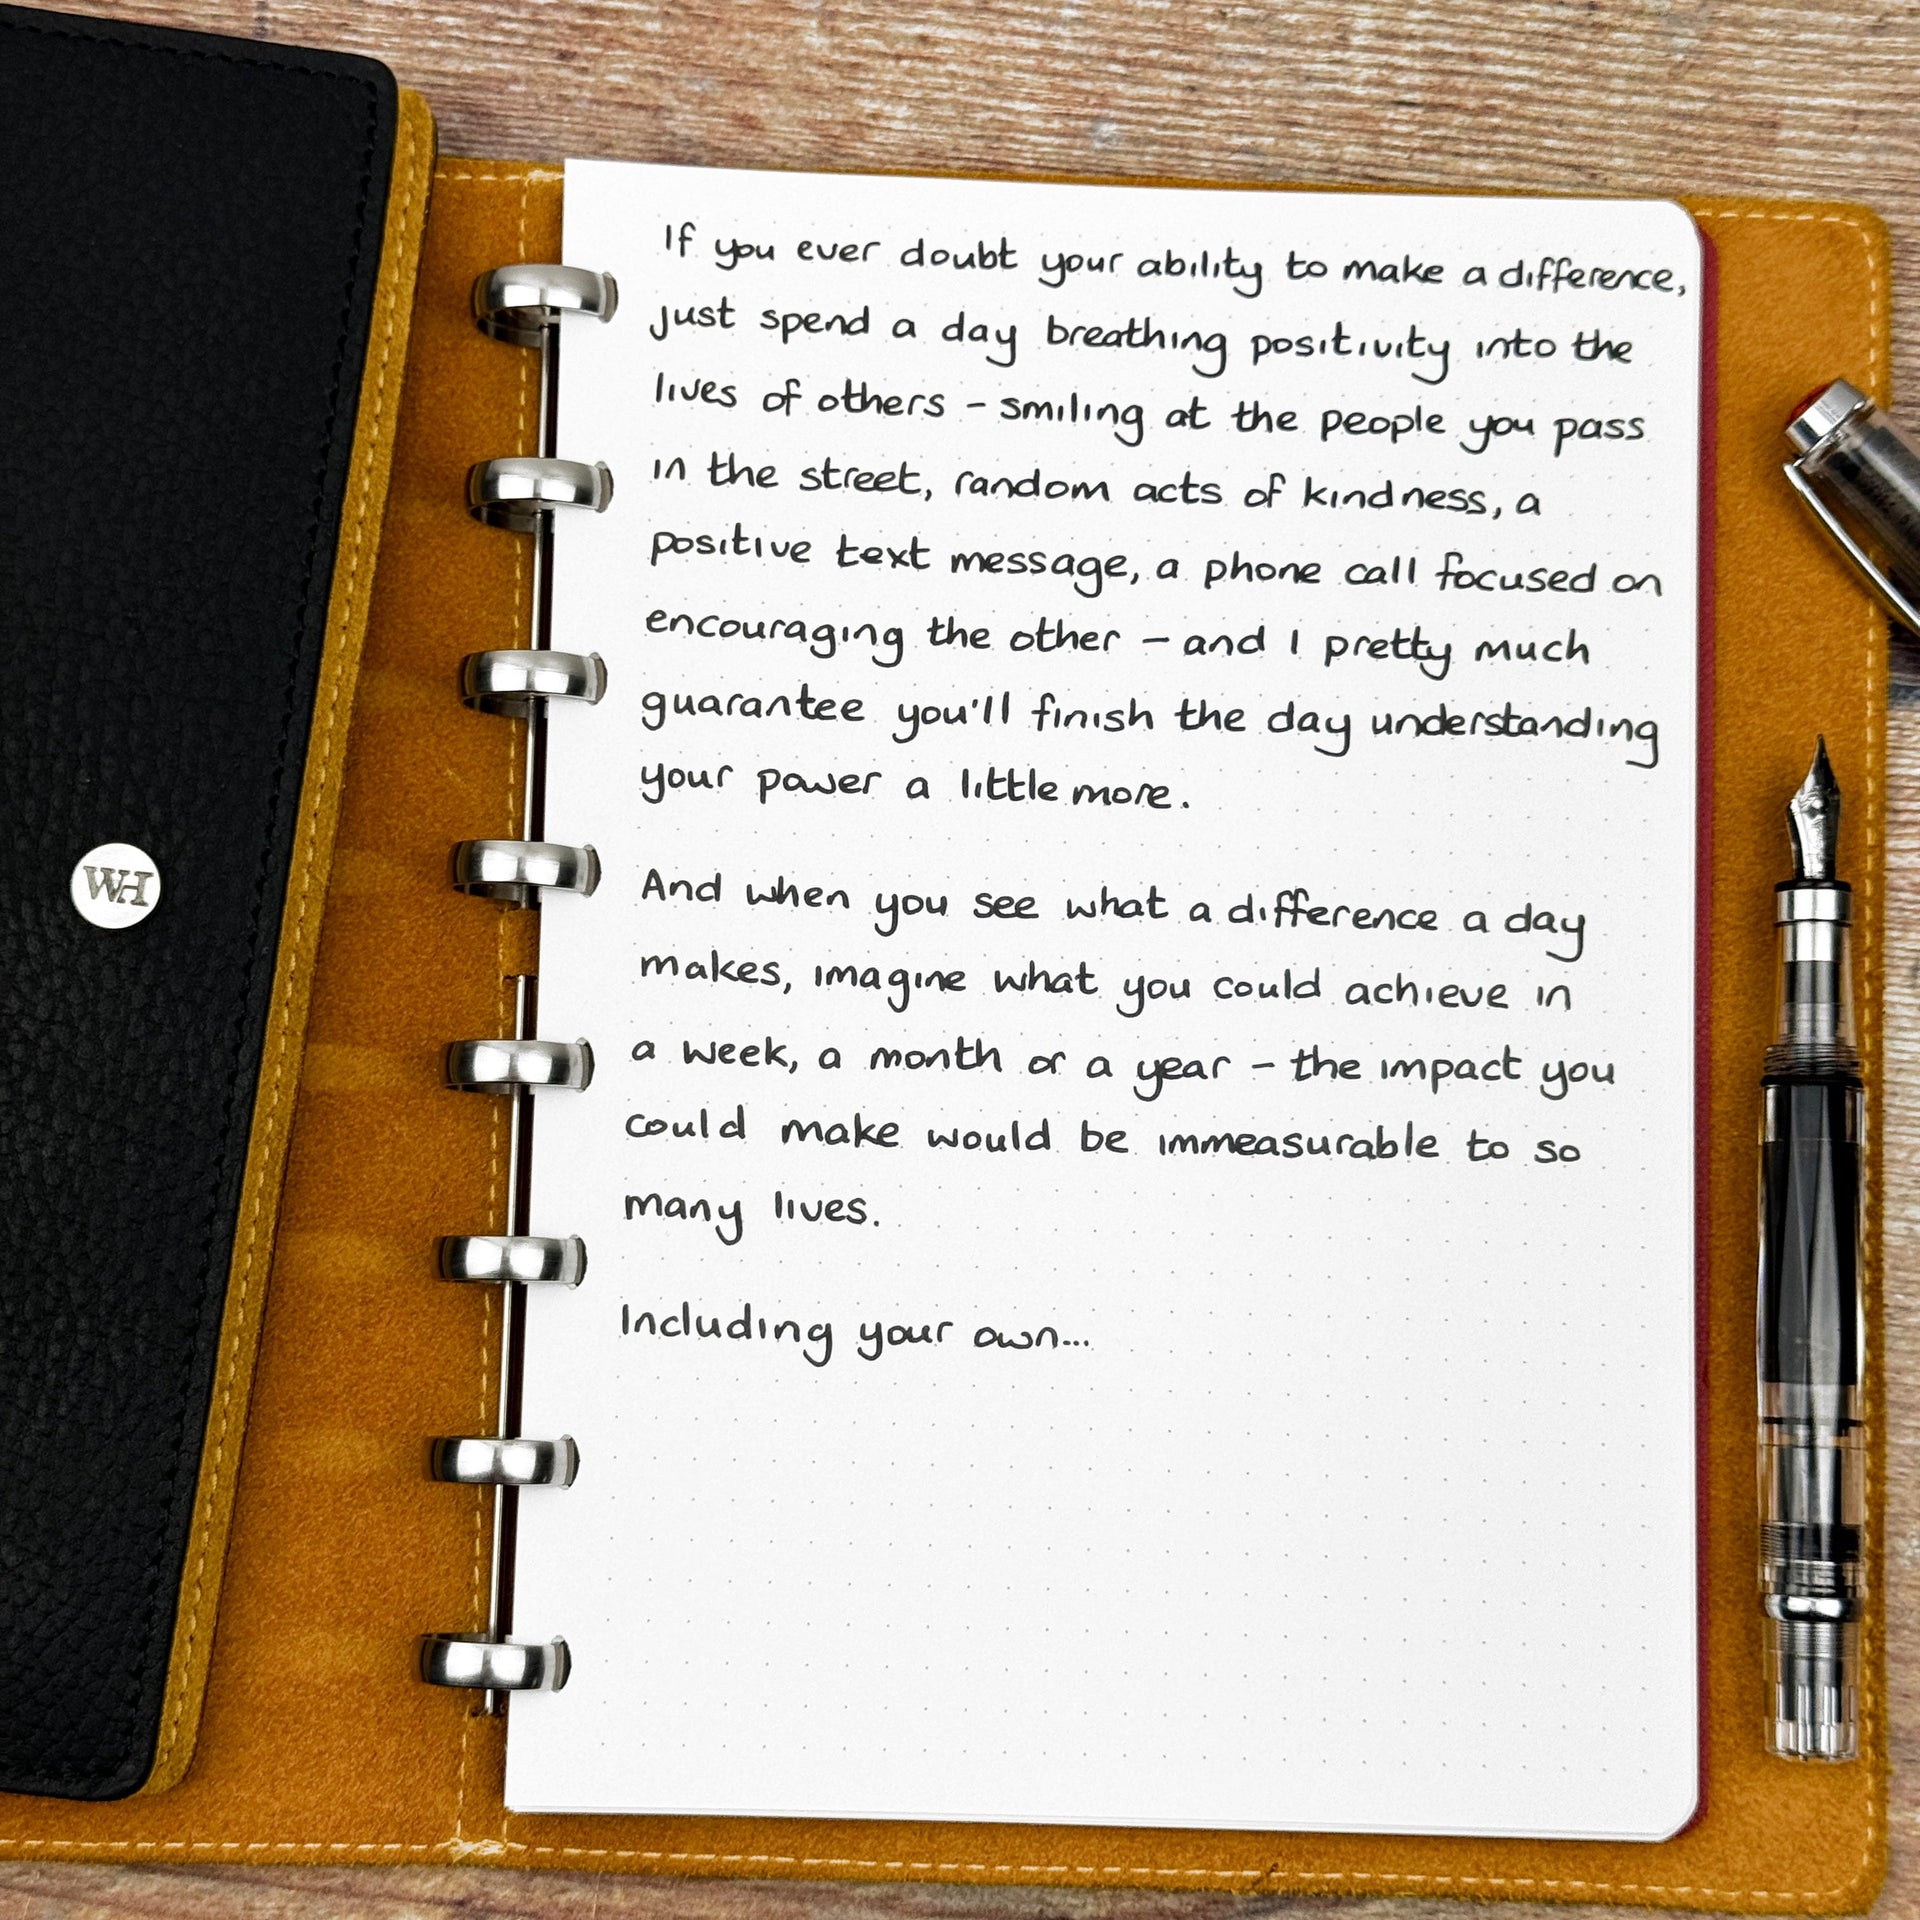 If you ever doubt your ability to make a difference,
just spend a day breathing positivity into the
lives of others – smiling at the people you pass
in the street, random acts of kindness, a
positive text message, a phone call focused on
encouraging the other – and I pretty much
guarantee you'll finish the day understanding
your power a little more.
And when you see what a difference a day
makes, imagine what you could achieve in
a week, a month or a year – the impact you
could make would be immeasurable to so
many lives.
Including your own...
WH